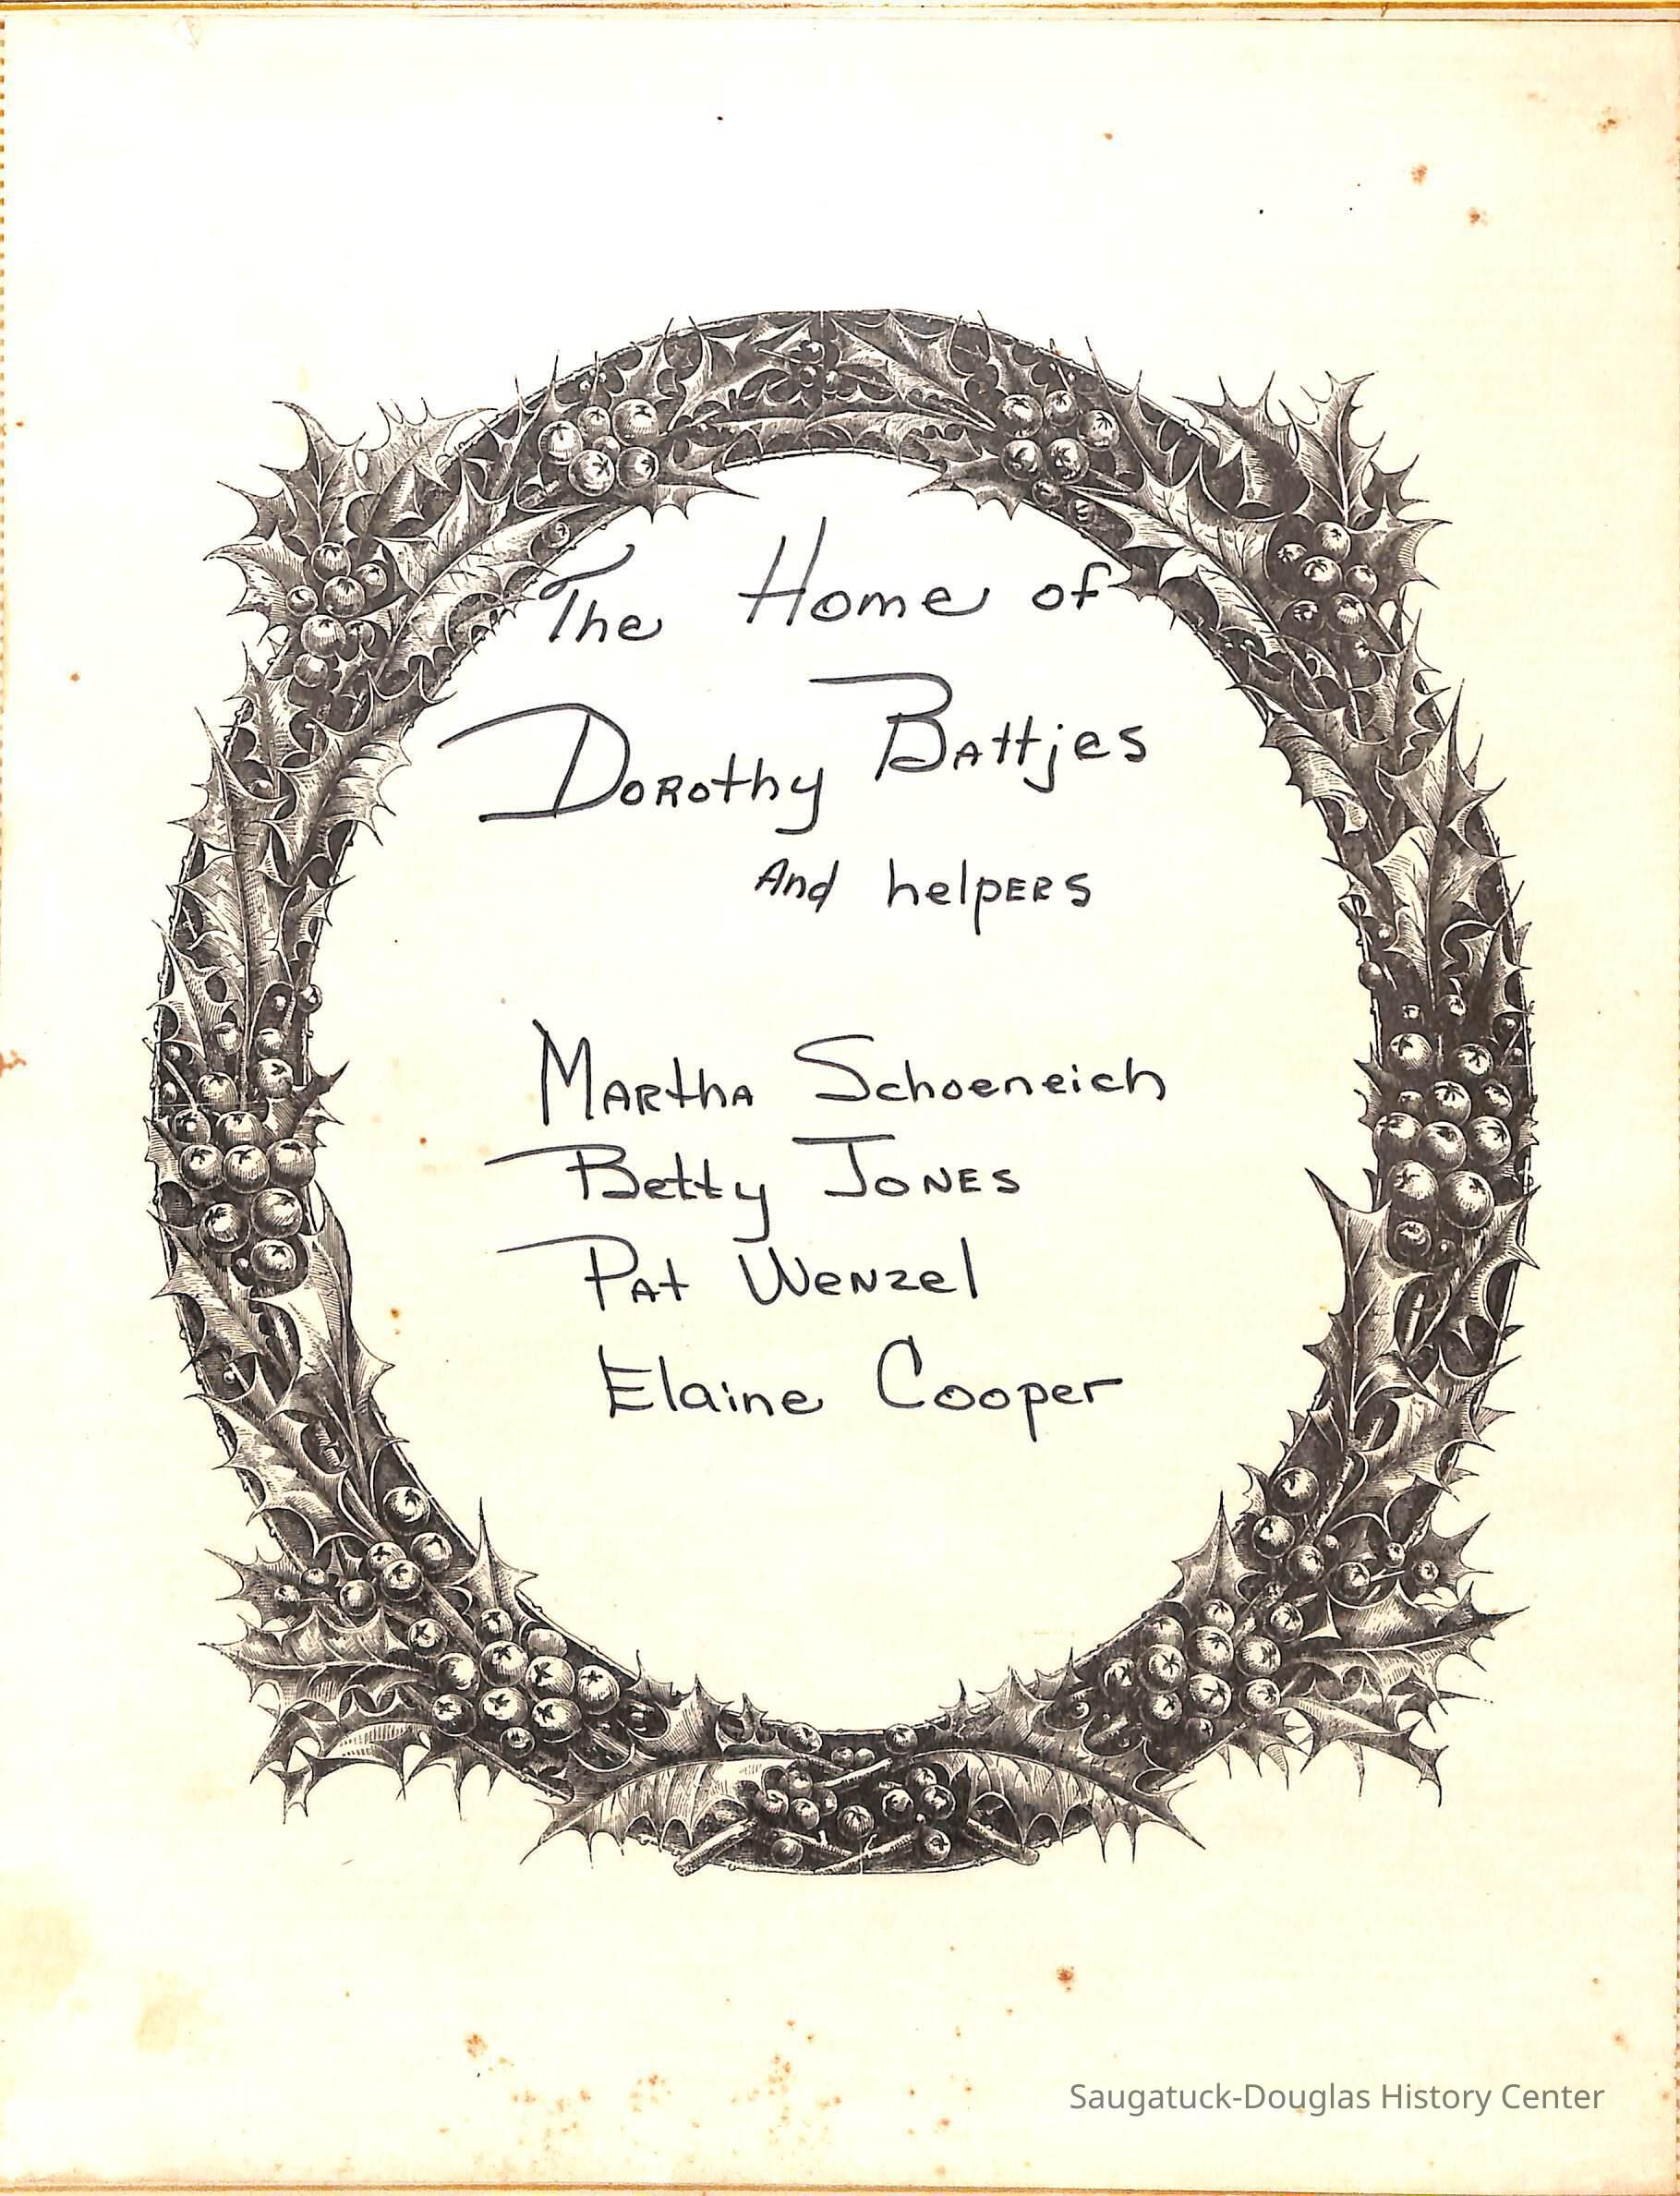 The Home of
Dorothy Battjes
And helpers
Martha Schoeneich
Betty Jones
Pat Wenzel
Elaine Cooper
Saugatuck-Douglas History Center